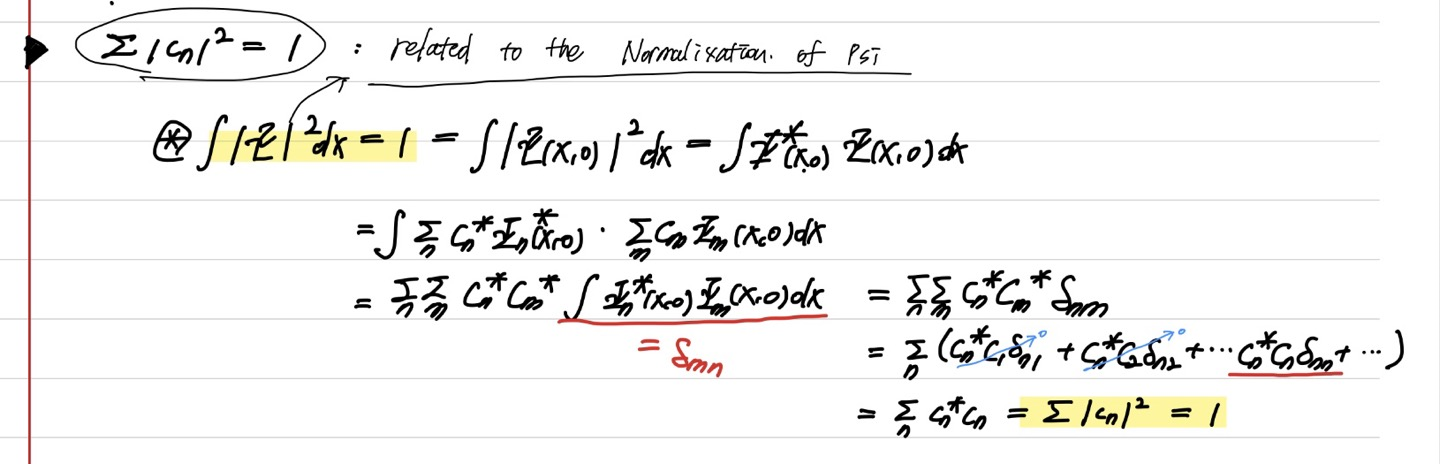 ▶ Σ|cₙ|² = 1 : related to the Normalixation. of Psi
⊛ ∫|Ψ|²dx = 1 = ∫|Ψ(x,0)|²dx = ∫Ψ*(x,0) Ψ(x,0)dx
= ∫ Σₙ cₙ*Ψₙ*(x,0) · Σₘ cₘ Ψₘ(x,0)dx
= Σₙ Σₘ cₙ* cₘ* ∫ Ψₙ*(x,0) Ψₘ(x,0)dx = Σₙ Σₘ cₙ* cₘ* δₙₘ
= δₘₙ
= Σₙ (cₙ*c₁δₙ₁ → 0 + cₙ*c₂δₙ₂ → 0 + ⋯ cₙ*cₙδₙₙ + ⋯)
= Σₙ cₙ*cₙ = Σ|cₙ|² = 1